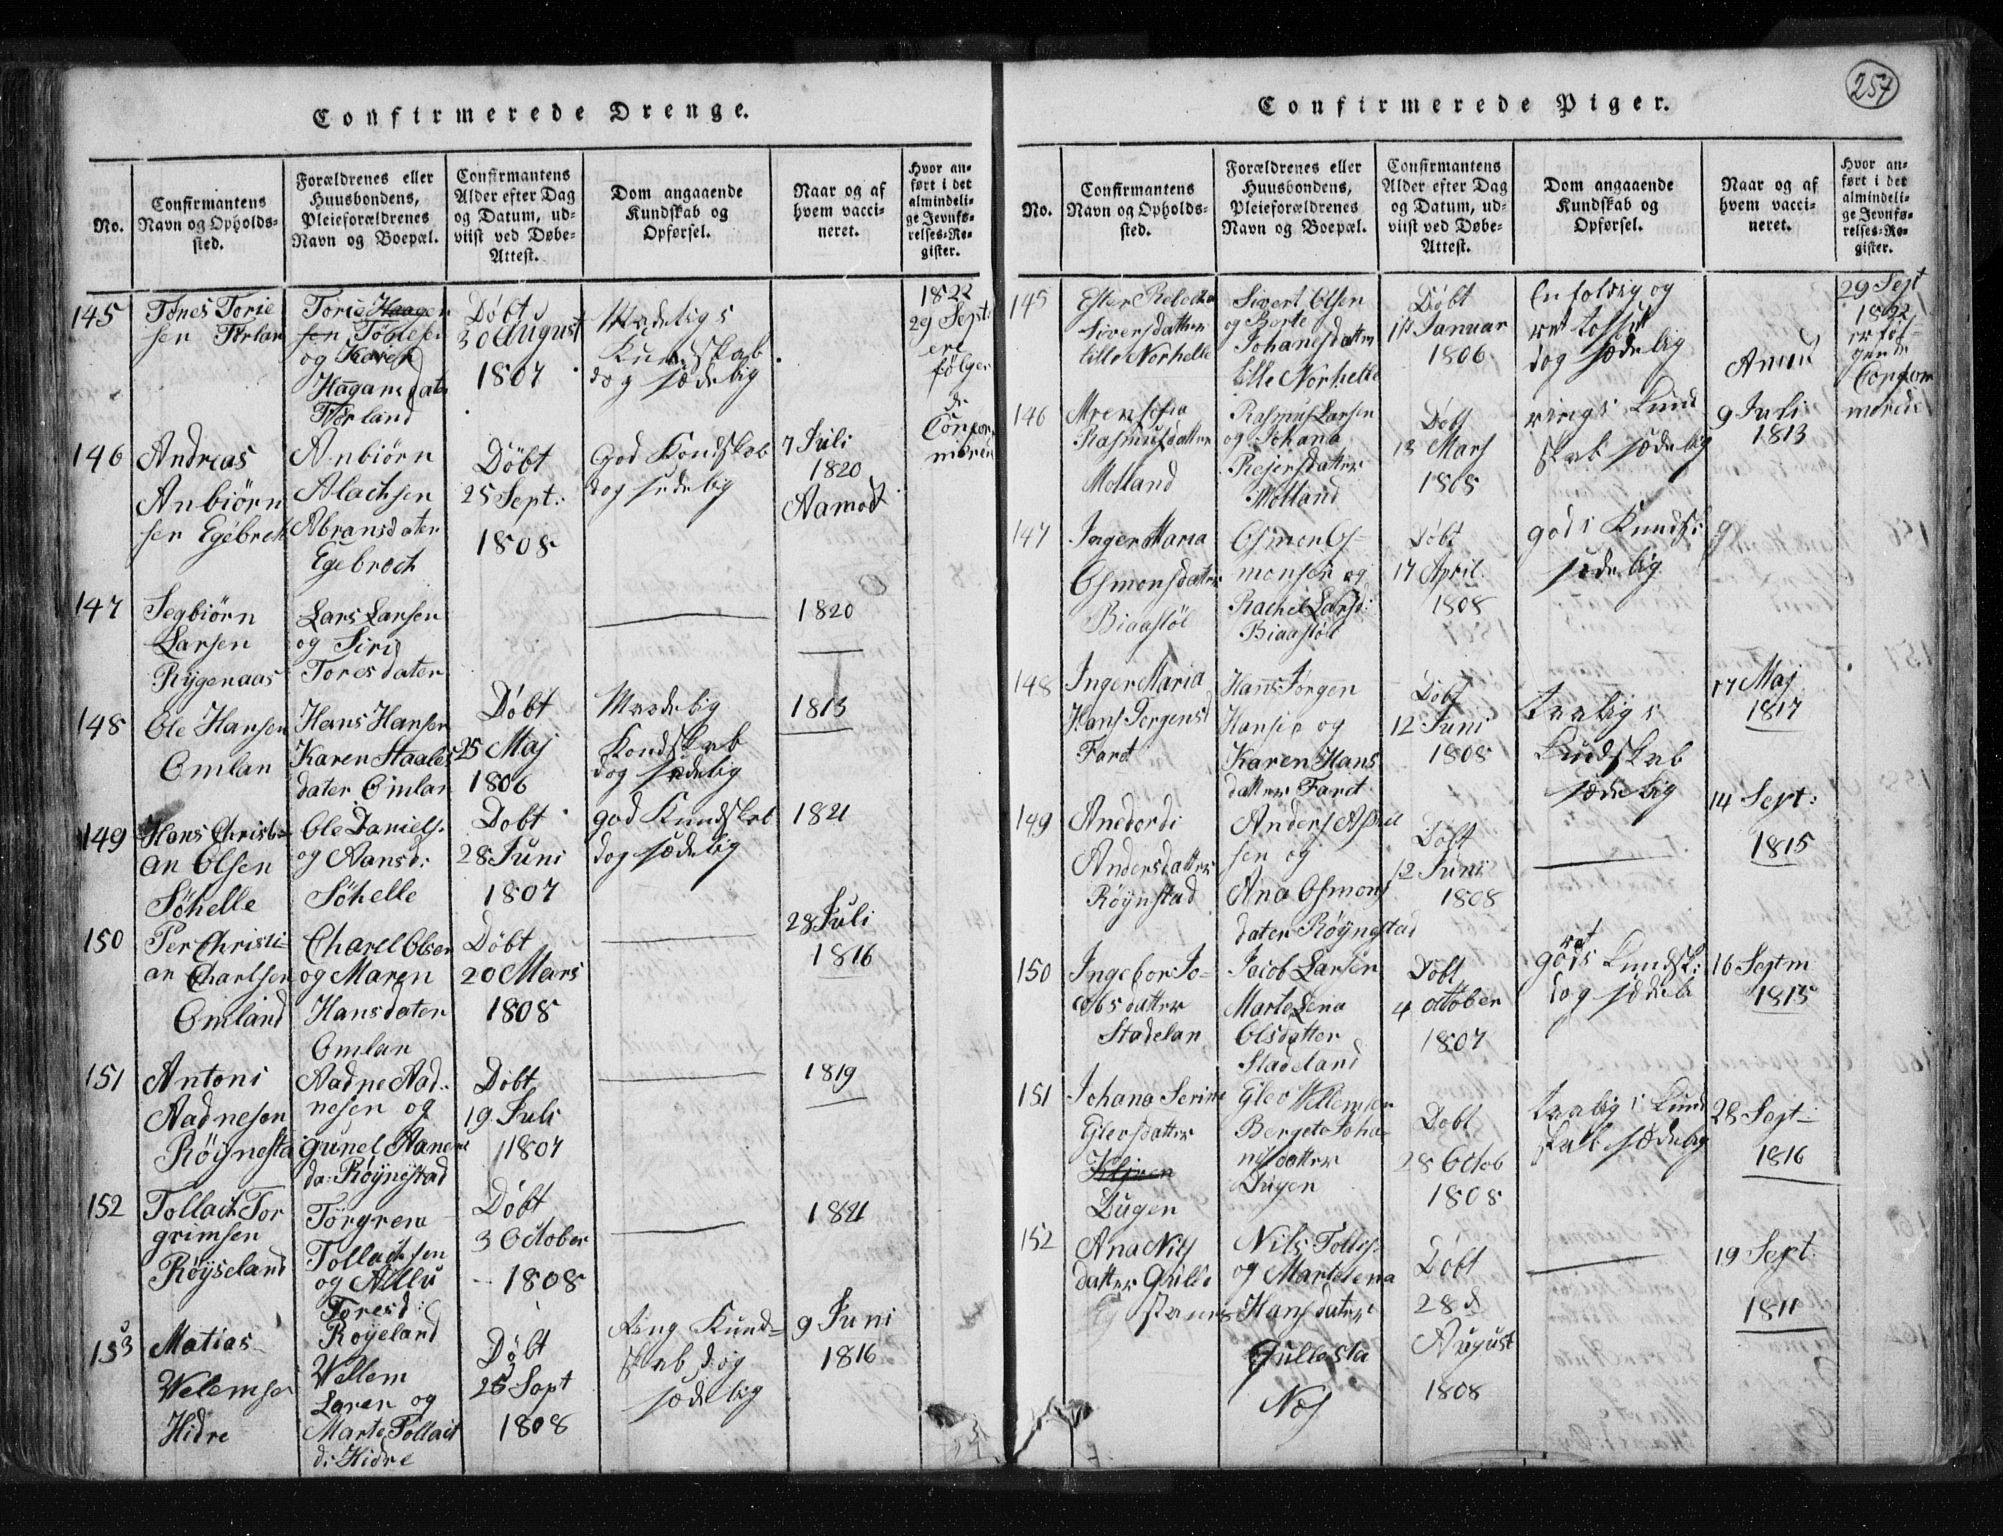 257
Confirmerede Drenge.
No.
Confirmantens
Navn og Opholds-
sted.
Forældrenes eller
Huusbondens,
Pleieforældrenes
Navn og Boepæl.
Confirmantens
Alder efter Dag
og Datum, ud-
viist ved Døbe-
Attest.
Dom angaaende
Kundskab og
Opførsel.
Naar og af
hvem vacci-
neret.
Hvor an-
ført i det
almindeli-
ge Jevnfø-
relses-Re-
gister.
145
Tønes Torie
sen Tørlan
Torie Haagen
sen Töblesen
og Karen
Haganisdater
Tørland
Döbt
30 August
1807
Maadeligs
Kundskab
dog sædelig
1822
29 Sept:
ere
følgen
de
Confor
meret
146
Andreas
Anbiörn
sen Egebrek
Anbiörn
Alachsen
Abransdater
Egebroch
Döbt
25 Sept:
1808
God Kondskab
dog sedelig
7 Juli
1820
Aamodt
147
Segbiörn
Larsen
Rygenaas
Lars Larsen
og Siri
Toresdater
1820
148
Ole Hansen
Omlan
Hans Hansen
Karen Staales
dater Omlan
Döbt
25 Maj
1806
Maadelig
Kondskab
dog sedelig
1813
149
Hans Christi-
an Olsen
Söhelle
Ole Daniels.
og Aansd:
Söhelle
Dobt
28 Juni
1807
god Kundskab
dog sædelig
1821
150
Per Christi-
an Charlsen
Omland
Charel Olsen
og Maren
Hansdater
Omlan
Döbt
20 Mars
1808
28 Juli
1816
151
Antoni
Aadnesen
Röÿnesta
Aadne Aad-
nesen og
Gunel Aanens
da: Röÿnestad
Döbt
19 Juli
1807
1819
152
Tollach Tor
grimsen
Röÿseland
Törgrem
Tollachsen
og Aillu
Toresd:
Roÿeland
Döbt
3 October
1808
1821
153
Matias
Welemsen
Hidre
Wellem
Laren og
Marte Tollact
d: Hidre
Döbt
25 Sept
1808
Ring Kund-
skab dog
sædelig
9 Juni
1816
Confirmerede Piger.
No.
Confirmantens
Navn og Opholds-
sted.
Forældrenes eller
Huusbondens,
Pleieforældrenes
Navn og Boepæl.
Confirmantens
Alder efter Dag
og Datum, ud-
viist ved Døbe-
Attest.
Dom angaaende
Kundskab og
Opførsel.
Naar og af
hvem vacci-
neret.
Hvor an-
ført i det
almindeli-
ge Jevnfø-
relses-Re-
gister.
145
Ester Rebecka
Siversdatter
Lille Norhelle
Sivert Olsen
og Borte
Johanesdatter
Lille Norhelle
Döbt
17 Januar
1806
Enfoldig og
ret tosset
dog sædelig
29 Sept
1822
er föl-
gende
Confor
merede
146
Rasmusdatter
Molland
Rasmus Larsen
og Johana
Rejersdatter
Molland
Dobt
13 Mars
1808
rings Kund
skab sædelig
9 Juli
1813
147
Inger Maria
Osmonsdatter
Biaaslöl
Osmon Os-
monsen og
Rachel Larsd:
Biaaslöl
Döbt
17 April
1808
gods Kundsk
sædelig
148
Inger Maria
Hans Jorgensd
Faret
Hans Jorgen
Hansen og
Karen Hans
datter Faret
Dobt
12 Juni
1808
taalig
Kundskab
sædelig
17 Maj
1817
149
Anedordi
Andersdatter
Röÿnstad
Anders Aksel
sen og
Ana Osmons
dater Röÿngstad
Döbt
12 Juni
1808
14 Sept:
1815
150
Ingebor Jo-
cobsdatter
Stadelan
Jacob Larsen
Marte Lena
Olsdatter
Stadeland
Döbt
4 october
1807
ret
gods Kundsk:
dog sædeli
16 Septm
1815
151
Johana Serine
Gleosdatter
Dugen
Gleo Wellemsen
Bergeta Joha-
nisdatter
Dugen
Dobt
28 Octob
1808
taalig Kund
skab sædelig
28 Sept:
1816
152
Ana Nils
datter Gulle
stanes
Nils Tollis.
og Martelena
Hansdater
Gullesta
Nes
Döbt
28 d
August
1808
19 Sept.
1811